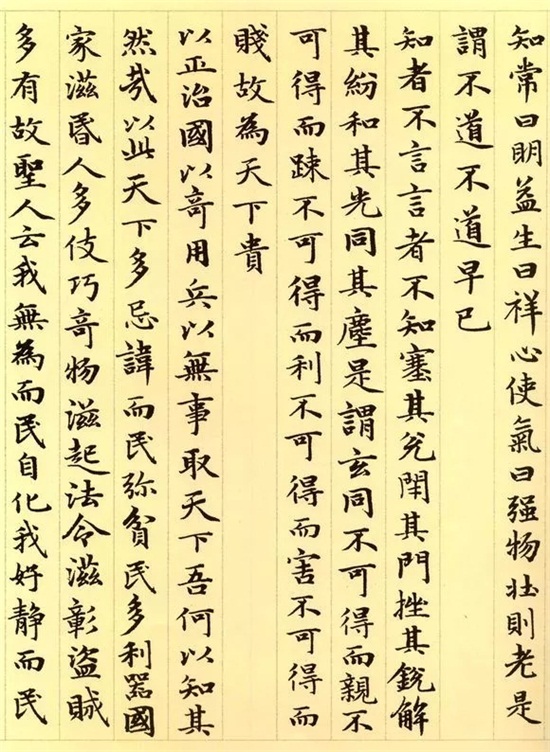 知常曰明益生曰祥心使氣曰强物壯則老是
謂不道不道早已
知者不言言者不知塞其兊閉其門挫其銳解
其紛和其光同其塵是謂玄同不可得而親不
可得而踈不可得而利不可得而害不可得而
賤故為天下貴
以正治國以奇用兵以無事取天下吾何以知其
然㢤以此天下多忌諱而民弥貧民多利器國
家滋昬人多伎巧奇物滋起法令滋彰盜賊
多有故聖人云我無為而民自化我好静而民